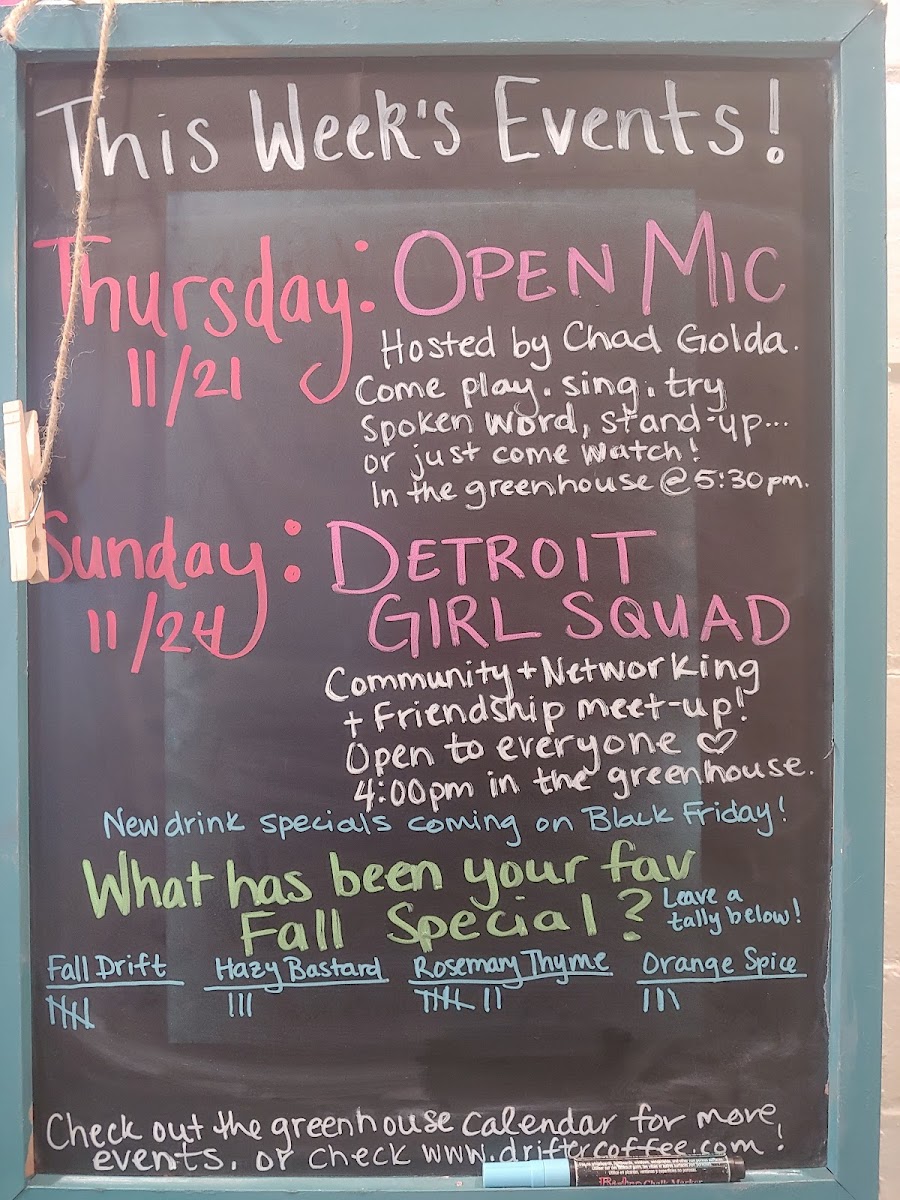 This Week's Events!
Thursday: OPEN MIC
11/21
Hosted by Chad Golda.
Come play. sing. try
spoken word, stand-up...
or just come watch!
In the greenhouse @ 5:30pm.
Sunday: DETROIT
11/24 GIRL SQUAD
Community + Networking
+ Friendship meet-up!
Open to everyone ♡
4:00pm in the greenhouse.
New drink specials coming on Black Friday!
What has been your fav
Fall Special?
Leave a
tally below!
Fall Drift Hazy Bastard Rosemary Thyme Orange Spice
Check out the greenhouse calendar for more
events, or check www.driftercoffee.com!
Chalk Marker